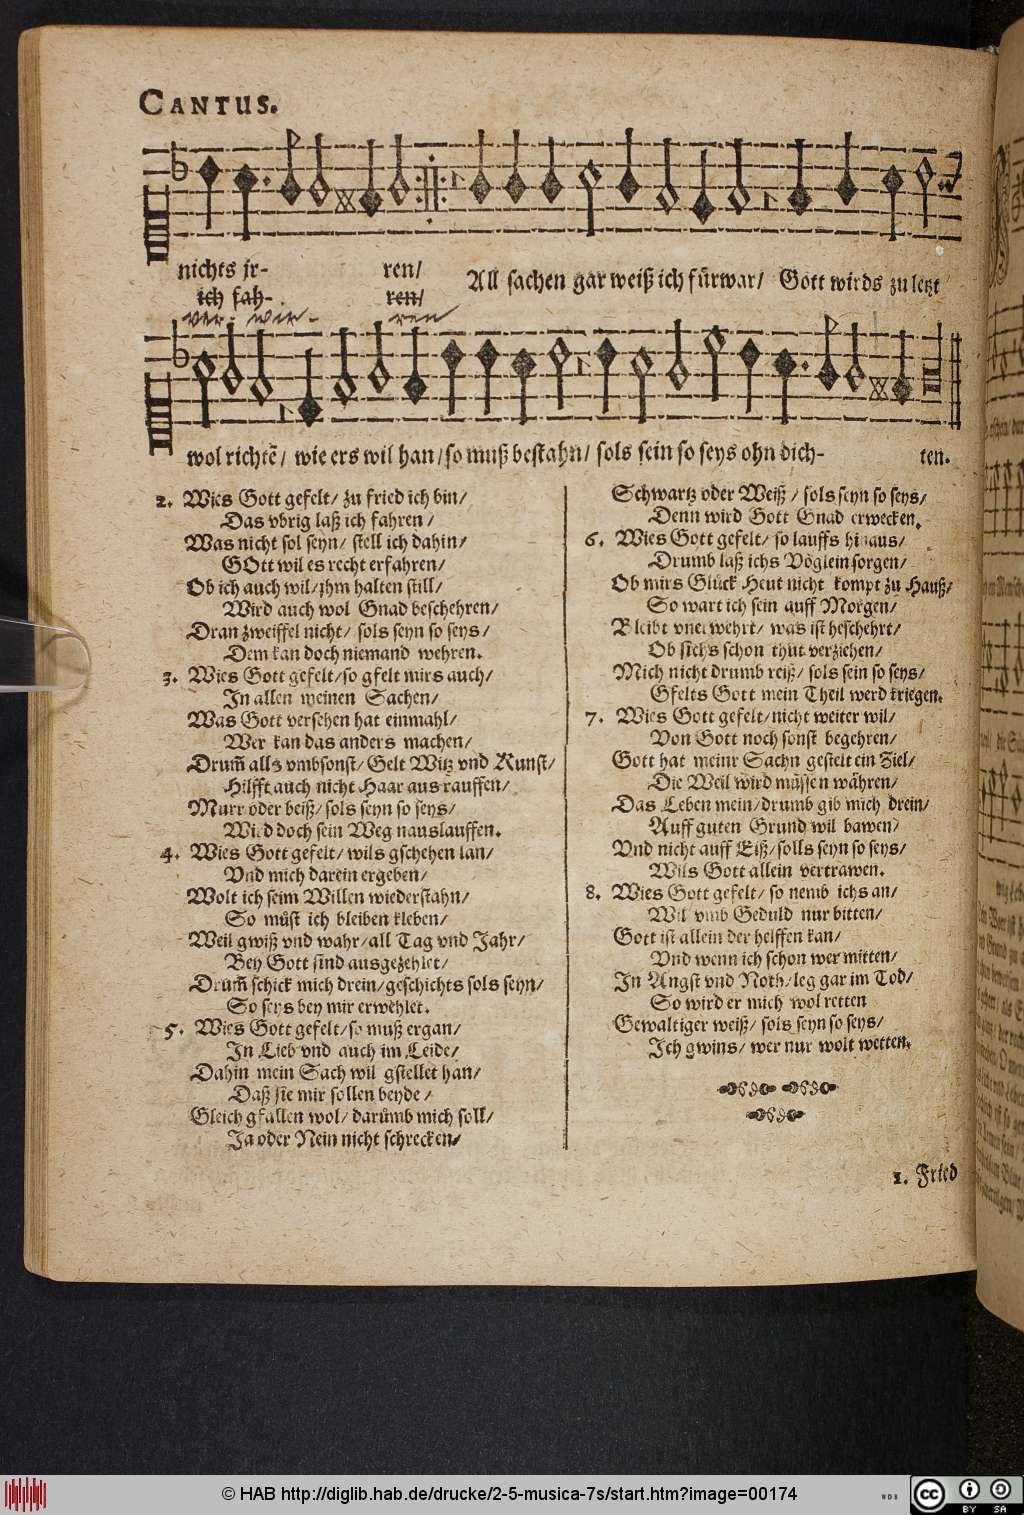 CANTUS.
nichts jr- ren/ All sachen gar weiß ich fürwar/ Gott wirds zu letzt
ich fah- ren/
ver- wir- ren
wol richtē/ wie ers wil han/ so muß bestahn/ sols sein so seys ohn dich- ten.
2. Wies Gott gefelt/ zu fried ich bin/
Das vbrig laß ich fahren/
Was nicht sol seyn/ stell ich dahin/
GOtt wil es recht erfahren/
Ob ich auch wil/ jhm halten still/
Wird auch wol Gnad beschehren/
Dran zweiffel nicht/ sols seyn so seys/
Dem kan doch niemand wehren.
3. Wies Gott gefelt/ so gfelt mirs auch/
In allen meinen Sachen/
Was Gott versehen hat einmahl/
Wer kan das anders machen/
Drum̃ alls vmbsonst/ Gelt Witz vnd Kunst/
Hilfft auch nicht Haar aus rauffen/
Murr oder beiß/ sols seyn so seys/
Wird doch sein Weg nauslauffen.
4. Wies Gott gefelt/ wils gschehen lan/
Vnd mich darein ergeben/
Wolt ich seim Willen wiederstahn/
So müst ich bleiben kleben/
Weil gwiß vnd wahr/ all Tag vnd Jahr/
Bey Gott sind ausgezehlet/
Drum̃ schick mich drein/ geschichts sols seyn/
So seys bey mir erwehlet.
5. Wies Gott gefelt/ so muß ergan/
In Lieb vnd auch im Leide/
Dahin mein Sach wil gstellet han/
Daß sie mir sollen beyde/
Gleich gfallen wol/ darümb mich soll/
Ja oder Nein nicht schrecken/
Schwartz oder Weiß/ sols seyn so seys/
Denn wird Gott Gnad erwecken.
6. Wies Gott gefelt/ so lauffs hinaus/
Drumb laß ichs Vöglein sorgen/
Ob mirs Glück Heut nicht kompt zu Hauß/
So wart ich sein auff Morgen/
Bleibt vnerwehrt/ was ist beschehrt/
Ob sichs schon thut verziehen/
Mich nicht drumb reiß/ sols sein so seys/
Gfelts Gott mein Theil werd kriegen.
7. Wies Gott gefelt/ nicht weiter wil/
Von Gott noch sonst begehren/
Gott hat meinr Sachn gestelt ein Ziel/
Die Weil wird müssen währen/
Das Leben mein/ drumb gib mich drein/
Auff guten Grund wil bawen/
Vnd nicht auff Eiß/ solls seyn so seys/
Wils Gott allein vertrawen.
8. Wies Gott gefelt/ so nemb ichs an/
Wil vmb Geduld nur bitten/
Gott ist allein der helffen kan/
Vnd wenn ich schon wer mitten/
In Angst vnd Noth/ leg gar im Tod/
So wird er mich wol retten
Gewaltiger weiß/ sols seyn so seys/
Ich gwins/ wer nur wolt wetten.
1. Fried
© HAB http://diglib.hab.de/drucke/2-5-musica-7s/start.htm?image=00174
WDB
cc BY SA